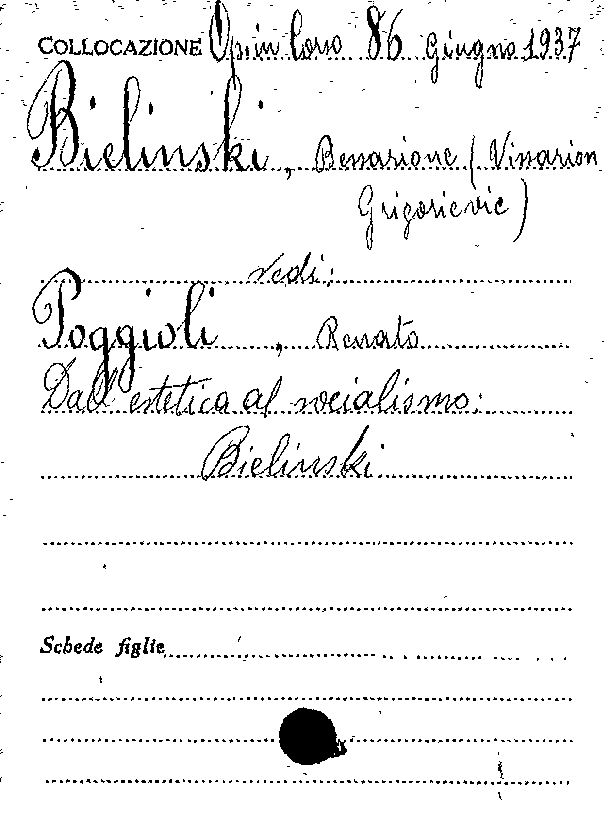 COLLOCAZIONE Op. in Corso 86 giugno 1937
Bielinski, Bessarione (Vissarion
Grigorievic)
vedi:
Poggioli, Renato
Dall'estetica al socialismo:
Bielinski
Schede figlie